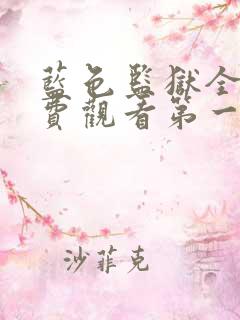 藍色監獄全
費觀看第一
沙菲克